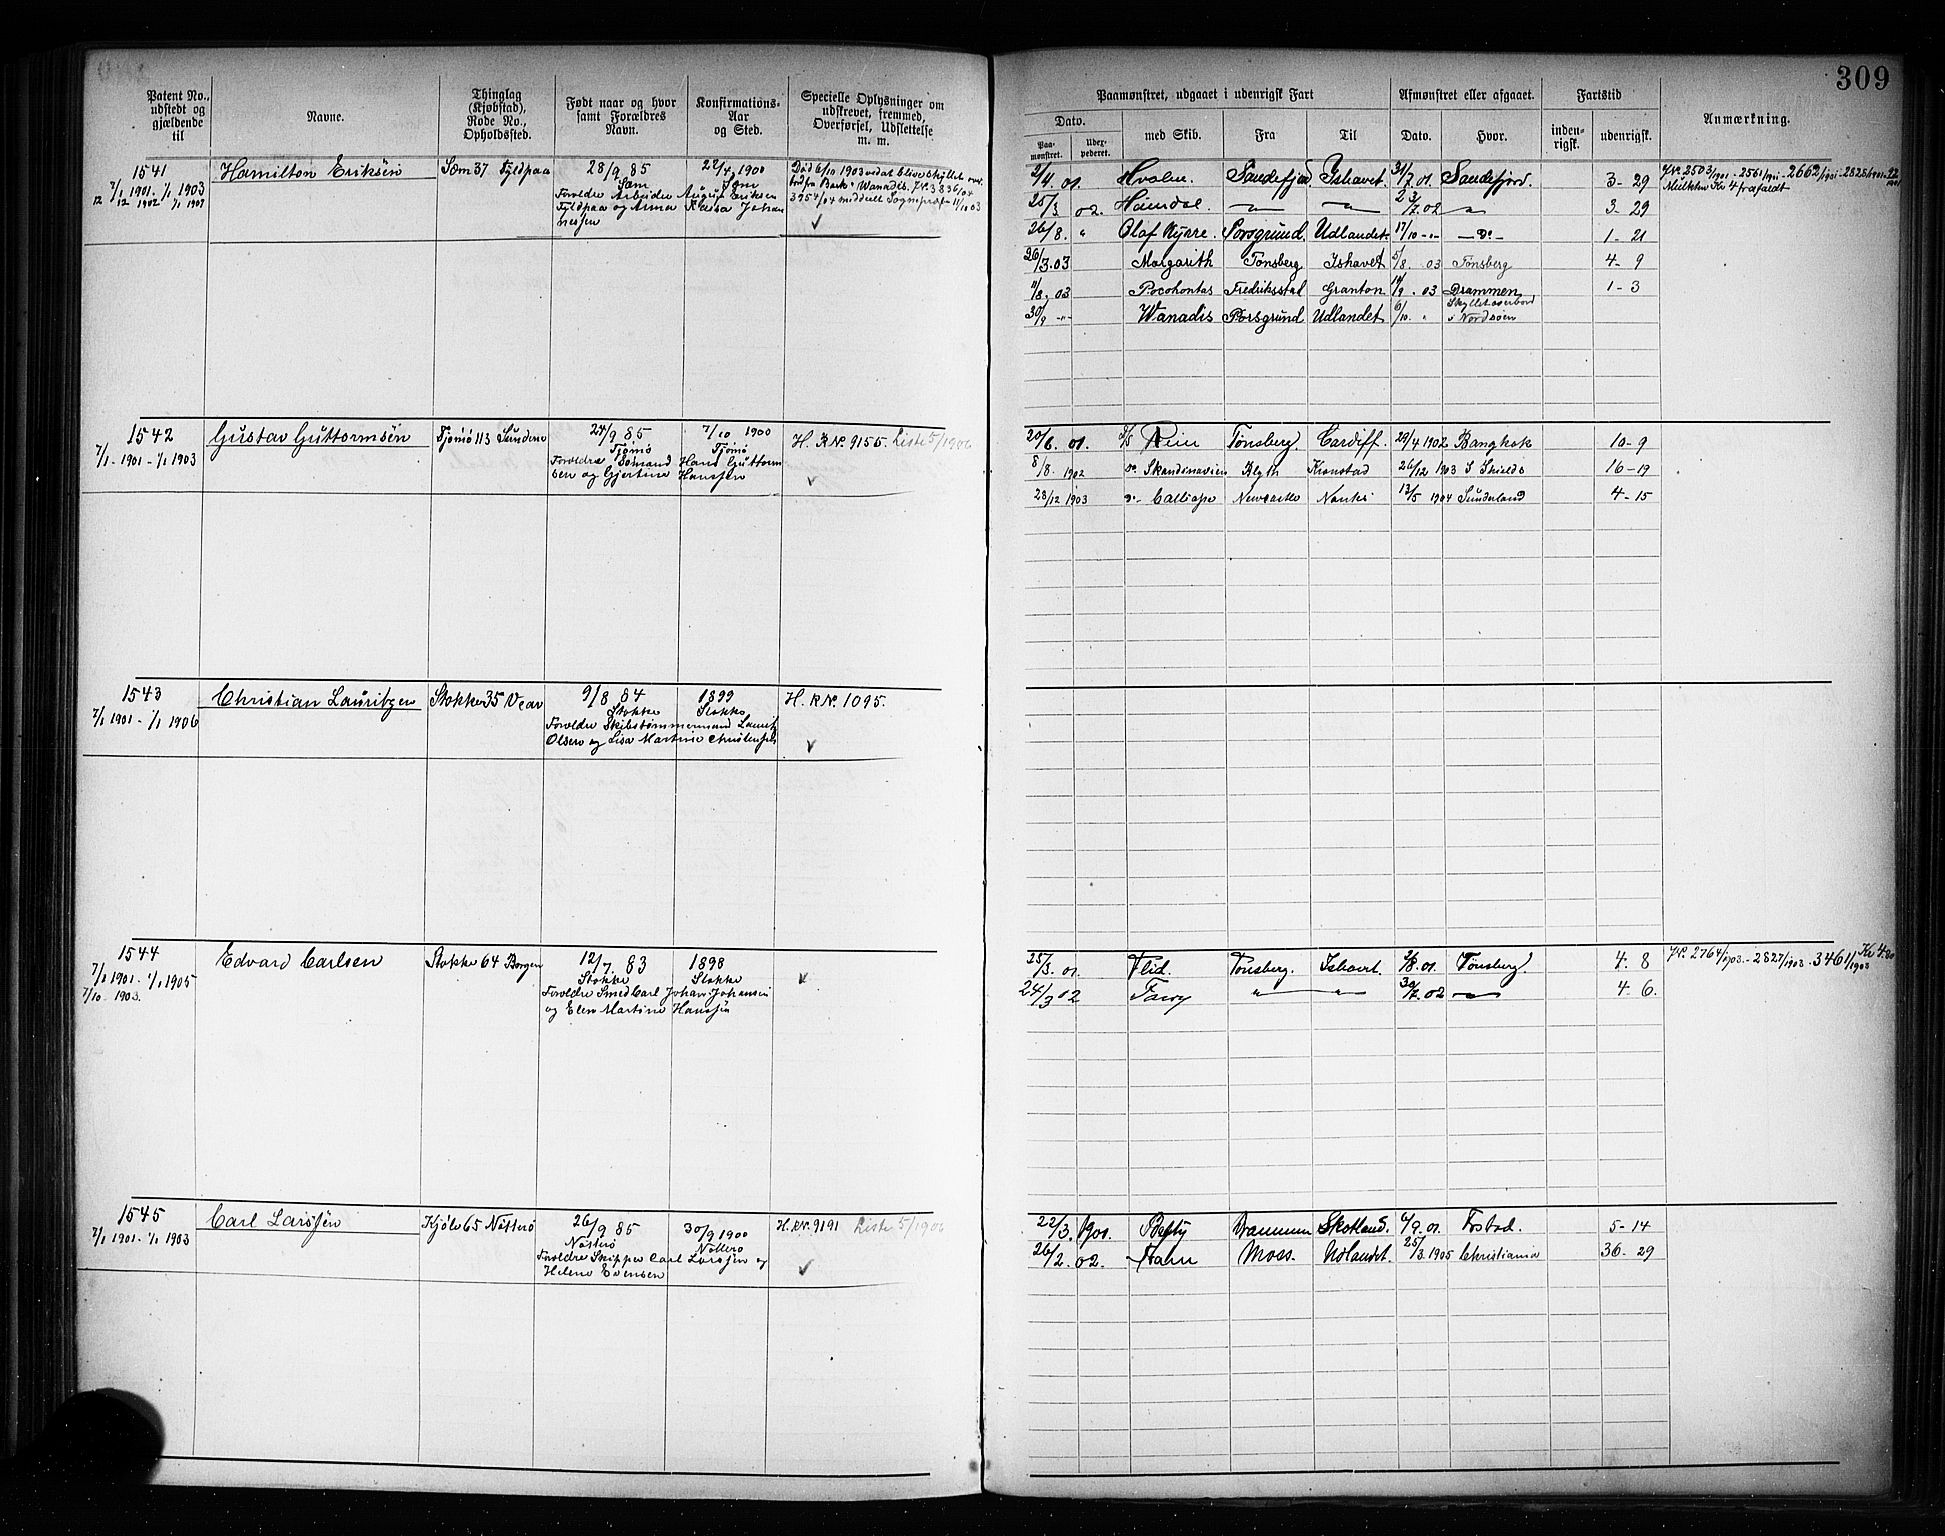 309
Patent No., udstedt og gjældende til
Navne.
Thinglag (Kjøbstad), Rode No., Opholdssted.
Født naar og hvor samt Forældres Navn.
Konfirmations-Aar og Sted.
Specielle Oplysninger om udskrevet, fremmed, Overførsel, Udslettelse m. m.
Paamønstret, udgaaet i udenrigsk Fart
Afmønstret eller afgaaet.
Fartstid
Anmærkning.
Dato.
Paa-mønstret.
Udex-pederet.
med Skib.
Fra
Til
Dato.
Hvor.
inden-rigsk.
udenrigsk.
1541
7/1 1901. 1/1 1903
12/12 1902 1/1 1907
Hamilton Eriksen
Sem 37 Fyldpaa
28/9 85
Sem
22/4 1900
Sem
Forældre Arbeider August Eriksen
Fyldpaa og Anna Johan
nessen
Død 6/10 1903 ved at blive skyllet over
bord fra Bark "Wanadis. J.N. 3836/04
3954/04 11/10 03
2/4. 01. Hvalen. Sandefjord Ishavet 31/7. 01. Sandefjord. 3-29
25/3 02. Heimdal. 2/7. 02 3-29
26/8. " Olaf Kyrre. Porsgrund. Udlandet 17/10 -"- -Do- 1-21
26/3. 03 Margarith Tønsberg Ishavet 5/8. 03 Tønsberg 4-9
11/8. 03 Pocohontas Fredriksstad Granton 14/9. 03 Drammen 1-3
30/9 -"- Wanadis Porsgrund Udlandet 6/10. " Skyllet overbord
i Nordsøen
J.N. 2503/1901 - 2561/1901 - 2662/1901 - 2828/1901
Mulkten Kr 4 frafaldt
1542
7/1 - 1901 - 1/1 1903
Gustav Guttormsen
Tjømø 113 Sundene
24/9 85
Tjømø
7/10 1900
Tjømø
Forældre Sømand Hans Guttorm
sen og Gjertine Hanssen
H. RN. 9155. Liste 5/1906
20/6. 01. D/S Rein Tønsberg. Cardiff. 29/4 1902 Bangkok 10-9
8/8. 1902 Do Skandinavien Blyth Kronstad 26/12 1903 S Shields 16-19
28/12 1903 Do- Calliope Newcastle 13/5 1904 Sunderland 4-15
1543
7/1 1901 - 1/1 1906
Christian Lauritzen
Stokke 35 Vear
9/8 84
Stokke
1899
Stokke
Forældre Skibstømmermand Laurits
Olsen og Lisa Martine Christensen
H. RN. 1095.
1544
7/1 1901. 1/1 1905
7/10 - 1903.
Edvard Carlsen
Stokke 64 Borgen
12/7. 83
Stokke
1898
Stokke
Forældre Smed Carl Johan Johansen
og Elen Martine Hanssen
25/3. 01. Flid. Tønsberg. Ishavet. 2/8. 01. Tønsberg 4. 8
24/3 02 Fawy " " 30/7. 02 4. 6.
J.N. 2764/1903. - 2827/1903. 3461/1903 Kr 4.80
1545
7/1 1901 - 1/1 1903
Carl Larssen
Kjøle 65 Nøtterø
26/9 85
Nøtterø
30/9 1900
Nøtterø
Forældre Skipper Carl Larssen og
Helene Evensen
H. RN. 9191 Liste 5/1906
22/3. 1901. Betty Drammen Skotland. 4/9. 01. 5-14
26/2. 02. Hahn Moss. Udlandet. 25/3. 1905 Christiania 36-29